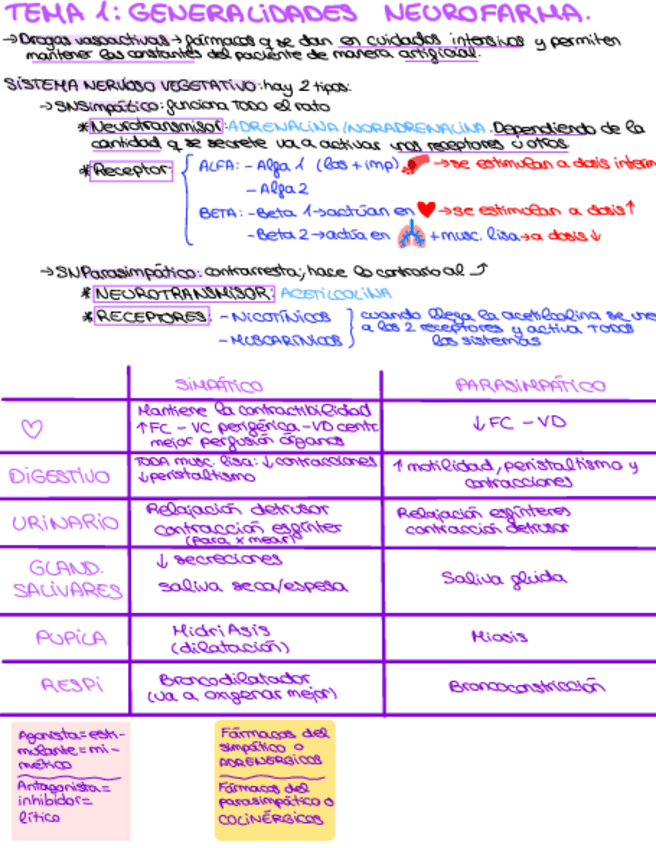 TEMA 1: GENERALIDADES NEUROFARMA.
→Drogas vasoactivas→fármacos q se dan en cuidados intensivos y permiten
mantener las constantes del paciente de manera artificial.
SISTEMA NERVIOSO VEGETATIVO: hay 2 tipos:
→SNSimpático: funciona TODO el rato
*Neurotransmisor: ADRENALINA/NORADRENALINA. Dependiendo de la
cantidad q se secrete va a activar unos receptores u otros.
*Receptor: ALFA: -Alfa 1 (las + imp) →se estimulan a dosis interm
-Alfa2
BETA: -Beta 1→actúan en ❤→se estimulan a dosis↑
-Beta 2→actúa en +musc. lisa→a dosis↓
→SNParasimpático: contrarresta; hace lo contrario al
*NEUROTRANSMISOR: ACETILCOLINA
*RECEPTORES: -NICOTÍNICOS cuando llega la acetilcolina se une
a los 2 receptores y activa TODOS
-MUSCARÍNICOS los sistemas
SIMPÁTICO PARASIMPÁTICO
♡ Mantiene la contractibilidad
↑FC - VC periférica -VD centr.
mejor perfusión órganos
↓FC - VD
DIGESTIVO TODA musc. lisa: ↓contracciones
↓peristaltismo
↑motilidad, peristaltismo y
contracciones
URINARIO Relajación detrusor
contracción esfínter
(para x mear)
Relajación esfínteres
contracción detrusor
GLAND.
SALIVARES
↓ secreciones
saliva seca/espesa
Saliva fluida
PUPILA MidriAsis
(dilatación)
Miosis
RESPI Broncodilatador
(va a oxigenar mejor)
Broncoconstricción
Agonista=esti-
mulante=mi-
mético
Antagonista=
inhibidor=
lítico
Fármacos del
simpático o
ADRENÉRGICOS
Fármacos del
parasimpático o
COLINÉRGICOS